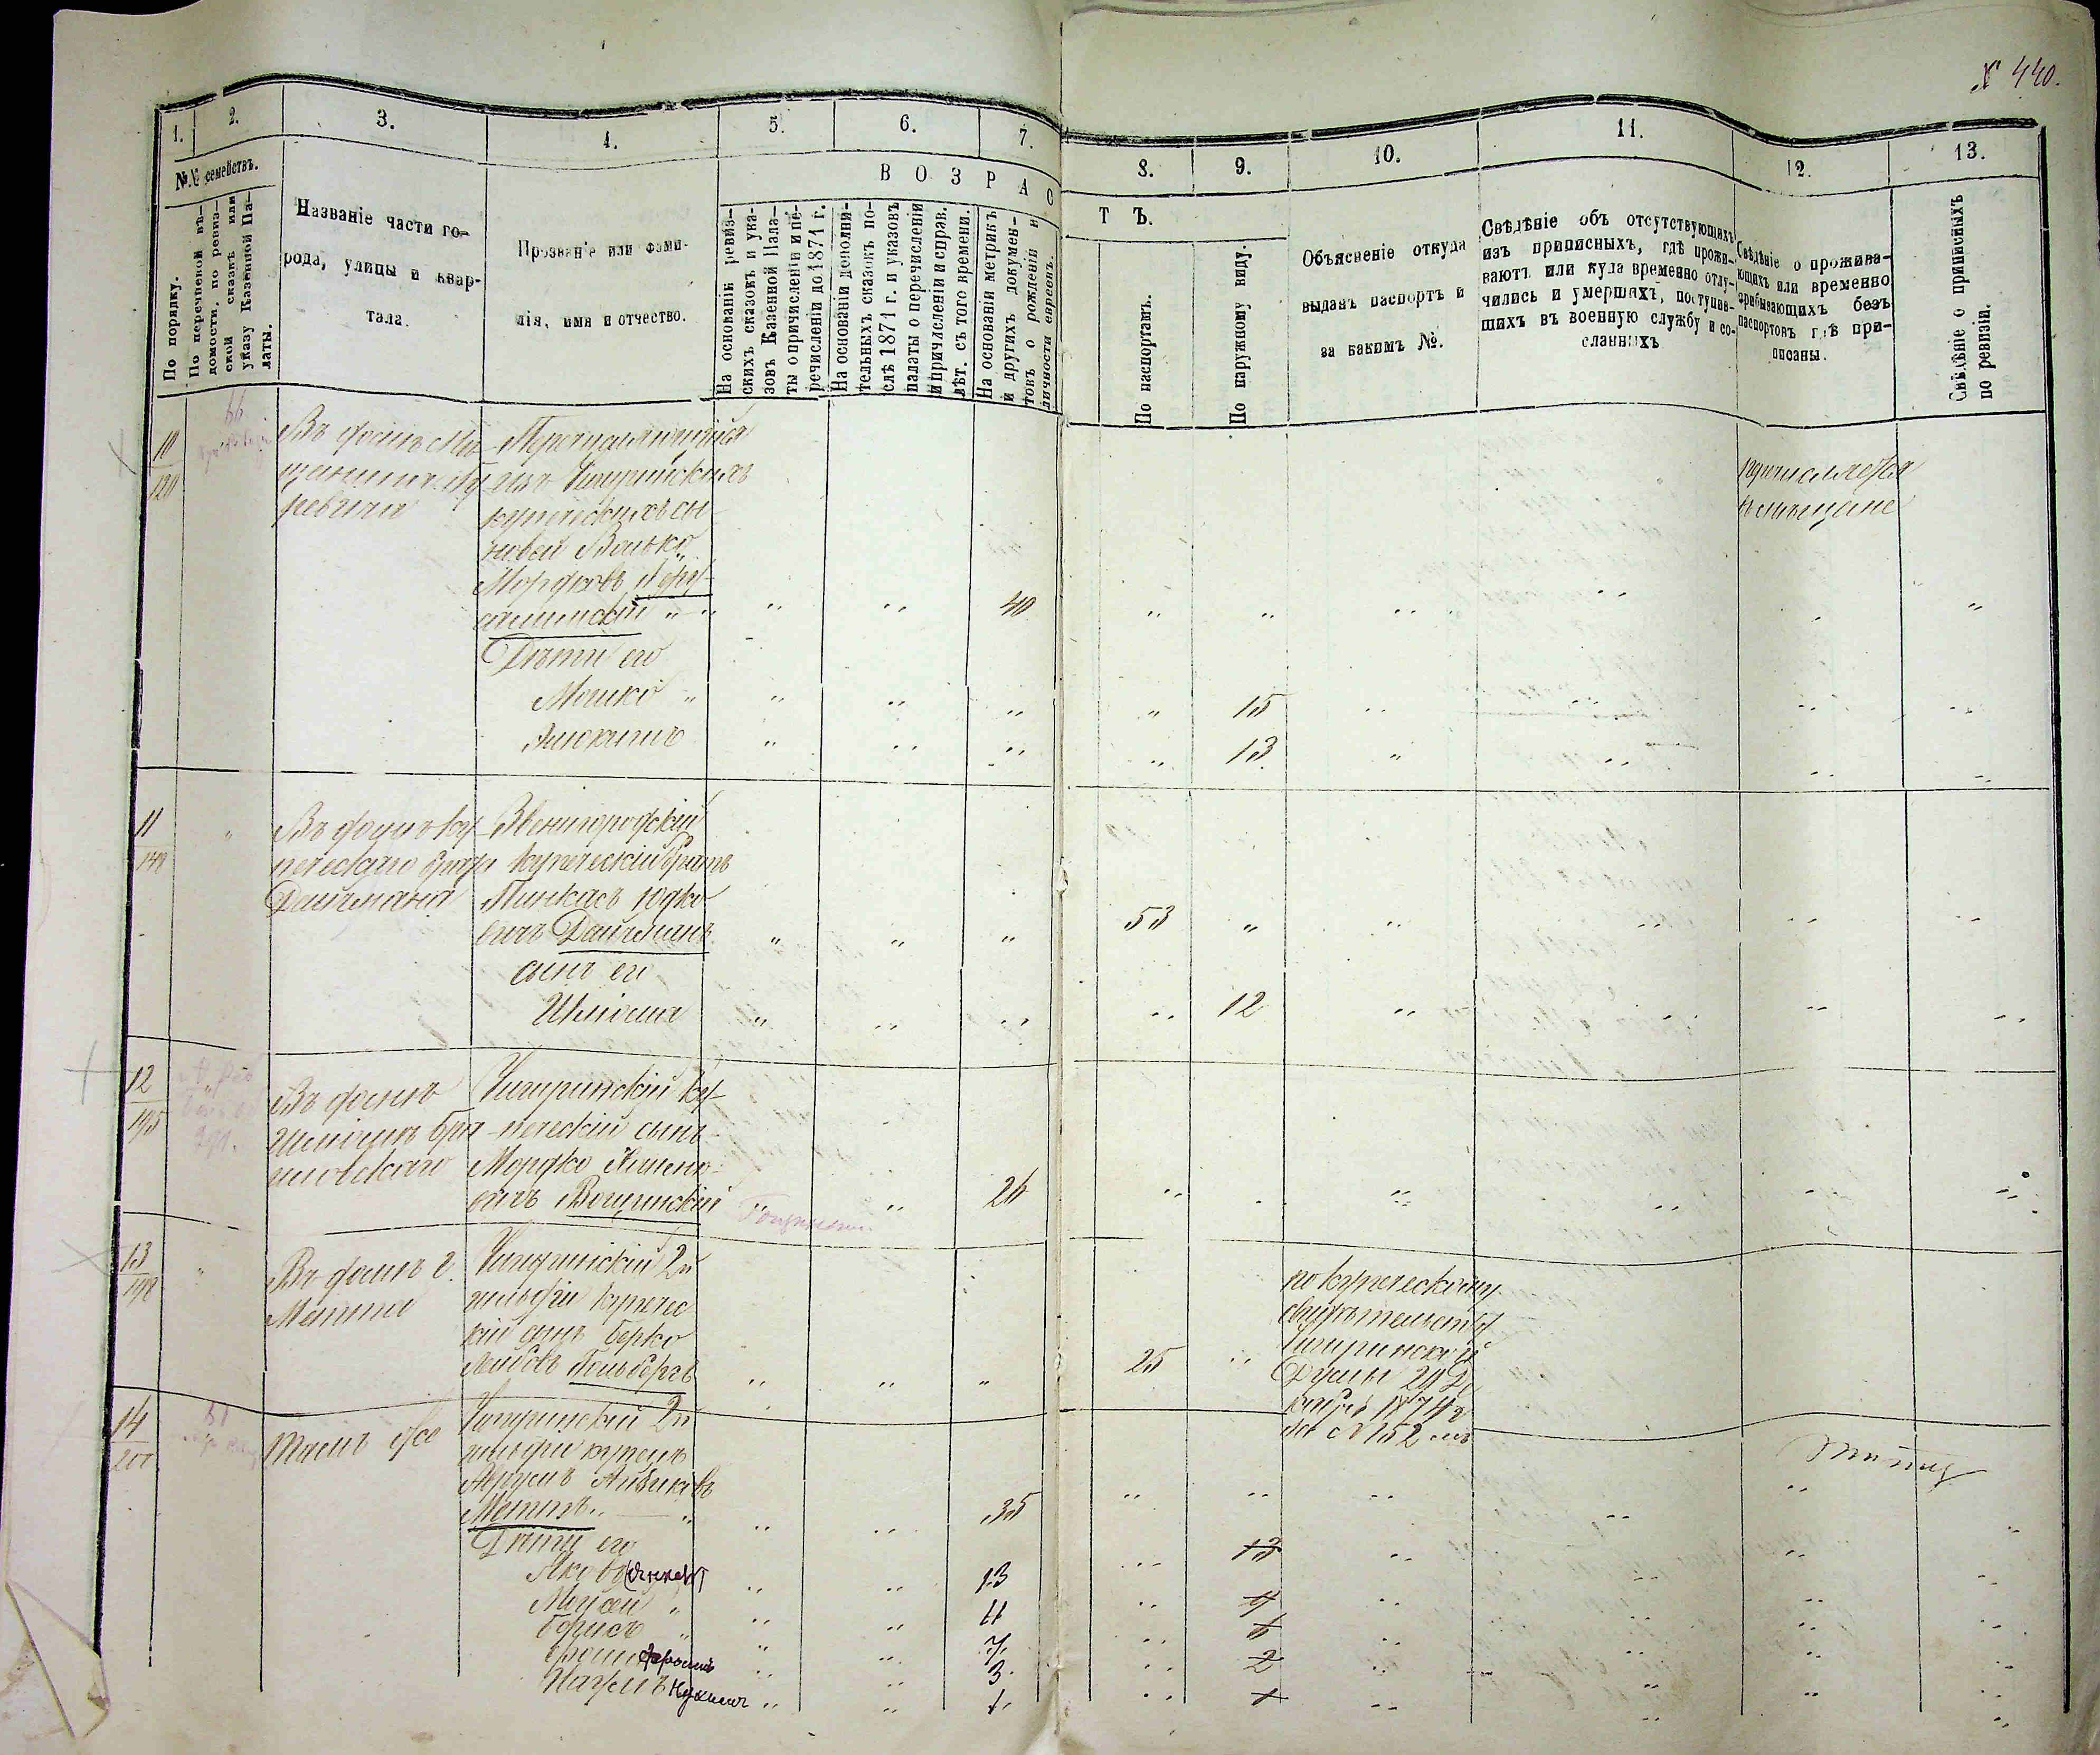 № 440.
1.
2.
3.
4.
5.
6.
7.
8.
9.
10.
11.
12.
13.
№№ семействъ.
По порядку.
По перечневой вѣ-
домости, по ревиз-
ской сказкѣ или
указу Казенной Па-
латы.
Названіе части го-
рода, улицы и квар-
тала.
Прозваніе или фами-
лія, имя и отчество.
ВОЗРАС
ТЪ.
На основаніи ревиз-
скихъ сказокъ и ука-
зовъ Казенной Пала-
ты о причисленіи и пе-
речисленіи до 1871 г.
На основаніи дополни-
тельныхъ сказокъ по-
слѣ 1871 г. и указовъ
палаты о перечисленіи
и причисленіи и справ.
лѣт. съ того времени.
На основаніи метрикъ
и другихъ докумен-
товъ о рожденіи и
личности евреевъ.
По паспортамъ.
По наружному виду.
Объясненіе откуда
выданъ паспортъ и
за какимъ №.
Свѣдѣніе объ отсутствующихъ
изъ приписныхъ, гдѣ прожи-
ваютъ или куда временно отлу-
чились и умершихъ, поступив-
шихъ въ военную службу и со-
сланныхъ
Свѣдѣніе о прожива-
ющихъ или временно
прибывающихъ безъ
паспортовъ гдѣ при-
писаны.
Свѣдѣніе о приписныхъ
по ревизіи.
10
120
66
Въ домѣ Мѣ-
щанина
ревича
Перечисляющійся
изъ Чигиринскихъ
купеческихъ сы-
новей Волько
Мордковъ Іеру-
салимскій
40
перечисляется
въ мѣщане
Дѣти его
Мошко 15
13
11
148
Въ домѣ ку-
печескаго брата
Дайчмана
Звенигородскій
купеческій братъ
Пинкасъ Юдко-
вичъ Дайчманъ 53
сынъ его
Шлиома 12
12
195
Въ домѣ
Шлиомы
Чигиринскій ку-
печескій сынъ
Мордко
вичъ Вощинскій 26
13
198
Въ домѣ г.
Метта
Чигиринскій 2й
гильдіи купечес
кій сынъ Берко
Лейбовъ Гольбергъ 25
по купеческому
свидѣтельству
Чигиринской
Думы 20 Де
кабря 1874 г
за № 152 мъ
14
200
61
Тамъ же
Чигиринскій 2й
гильдіи купецъ
Абрумъ
Меттъ 35
Дѣти его
Яковъ (Янкель) 13 13
Мойсей 11
Борисъ 7 6
Ефроимъ 3 2
Нахумъ 1 1